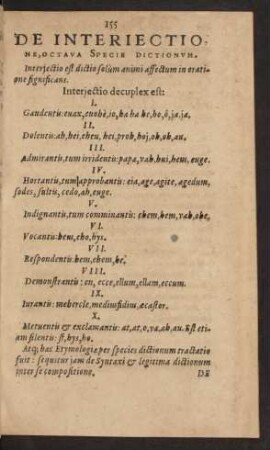 255
DE INTERIECTIO-
NE, OCTAVA SPECIE DICTIONVM.
Interjectio est dictio solùm animi affectum in orati-
one significans.
Interjectio decuplex est:
I.
Gaudentis: euax, euohè, io, ha ha he, ho, ô, ja, ja.
II.
Dolentis: ah, hei, eheu, hei, proh, hoj, oh, oh, au.
III.
Admirantis, tum irridentis: papæ, vah, hui, hem, euge.
IV.
Hortantis, tum approbantis: eia, age, agite, agedum,
sodes, sultis, cedo, ah, euge.
V.
Indignantis, tum comminantis: ehem, hem, vah, ohe,
VI.
Vocantis: hem, eho, hys.
VII.
Respondentis: hem, ehem, he.
VIII.
Demonstrantis: en, ecce, ellum, ellam, eccum.
IX.
Iurantis: mehercle, mediusfidius, æcastor.
X.
Metuentis & exclamantis: at, at, o, va, ah, au. Est eti-
am silentis: st, hys, ho.
Atq; hæc Etymologiæ per species dictionum tractatio
fuit: sequitur jam de Syntaxi & legitima dictionum
inter se compositione.
DE